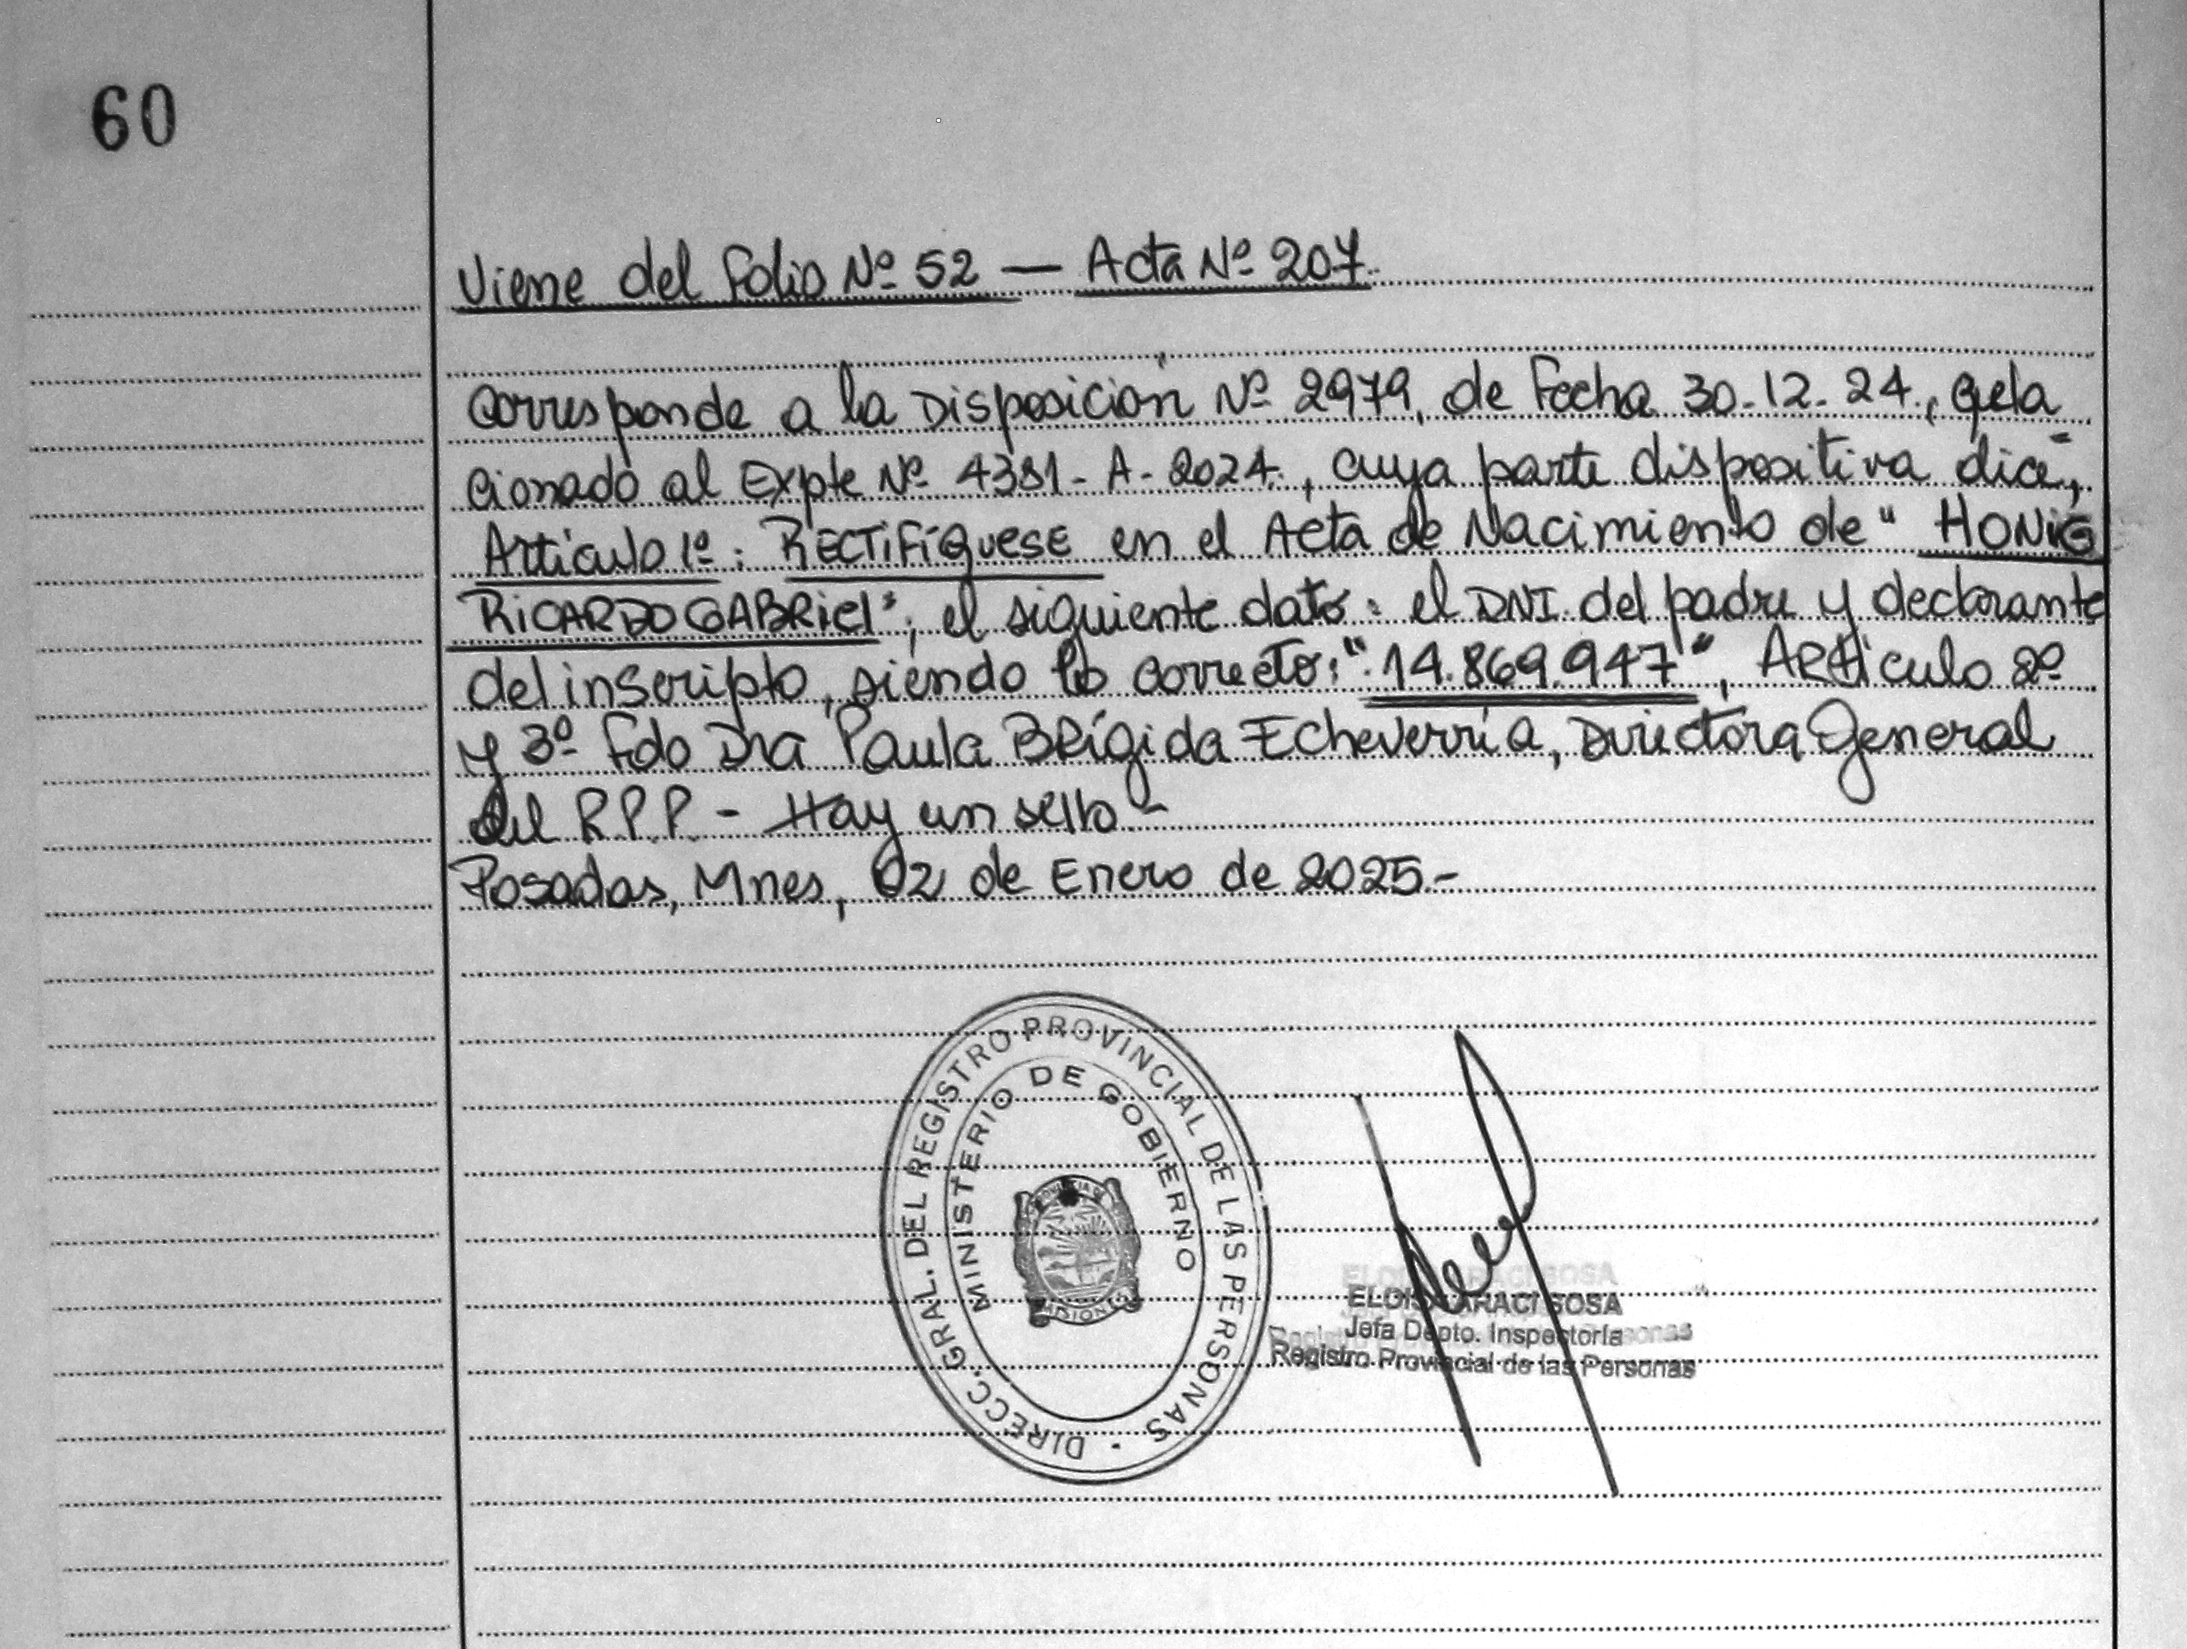 60
Viene del Folio Nº 52 — Acta Nº 207.
Corresponde a la Disposición Nº 2979, de Fecha 30-12-24, rela
cionado al Expte Nº 4381-A-2024, cuya parte dispositiva dice,
Artículo 1º: RECTIFÍQUESE en el Acta de Nacimiento de "HONIG
RICARDO GABRIEL", el siguiente dato: el DNI del padre y declarante
del inscripto, siendo lo correcto: "14.869.947", Artículo 2º
y 3º Fdo Dra Paula Brígida Echeverría, Directora General
del R.P.P - Hay un sello -
Posadas, Mnes, 02 de Enero de 2025.-
DIRECC. GRAL. DEL REGISTRO PROVINCIAL DE LAS PERSONAS
MINISTERIO DE GOBIERNO
PROVINCIA DE
MISIONES
ELOISA ARACI SOSA
Jefa Depto. Inspectoría
Registro Provincial de las Personas